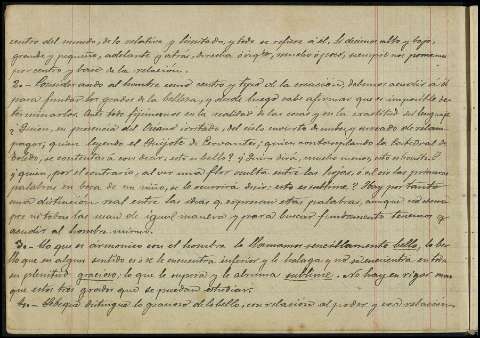 centro del mundo, de lo relativo y limitado, y todo se refiere á él, le decimos alto y bajo,
grande y pequeño, adelante y atrás, derecha é izqda, mucho ó poco, siempre nos ponemos
por centro y base de la relación.
2.- Considerando al hombre como centro y tipo de la creación, debemos acudir á él
para fundar los grados de la belleza, y desde luego cabe afirmar que es imposible de-
terminarlos. Ante todo fijémonos en la realidad de las cosas y en la exactitud del lenguaje
¿Quien, en presencia del Oceano irritado, del cielo cubierto de nubes y surcado de relam-
pagos; quien leyendo el Quijote de Cervantes; quien contemplando la Catedral de
Toledo, se contentará con decir, esto es bello? y Quien dirá, mucho menos, esto es bonito?
¿y quien, por el contrario, al ver una flor oculta entre las hojas, ó al oir las primeras
palabras en boca de un niño, se le ocurrirá decir: esto es sublime? Hay por tanto
una distinción real entre las ideas q. expresan estas palabras, aunque no siem-
pre ni todos las usan de igual manera y para buscar fundamento tenemos q.
acudir al hombre mismo.
3.- Lo que es armónico con el hombre lo llamamos sencillamente bello, lo be-
llo que en algun sentido es ó se le encuentra inferior y le halaga y no se encuentra en toda
su plenitud gracioso; lo que le supera y le abruma sublime. No hay en rigor mas
que estos tres grados que se puedan estudiar.
4.- Lo que distingue lo gracioso de lo bello, con relación al poder y con relación